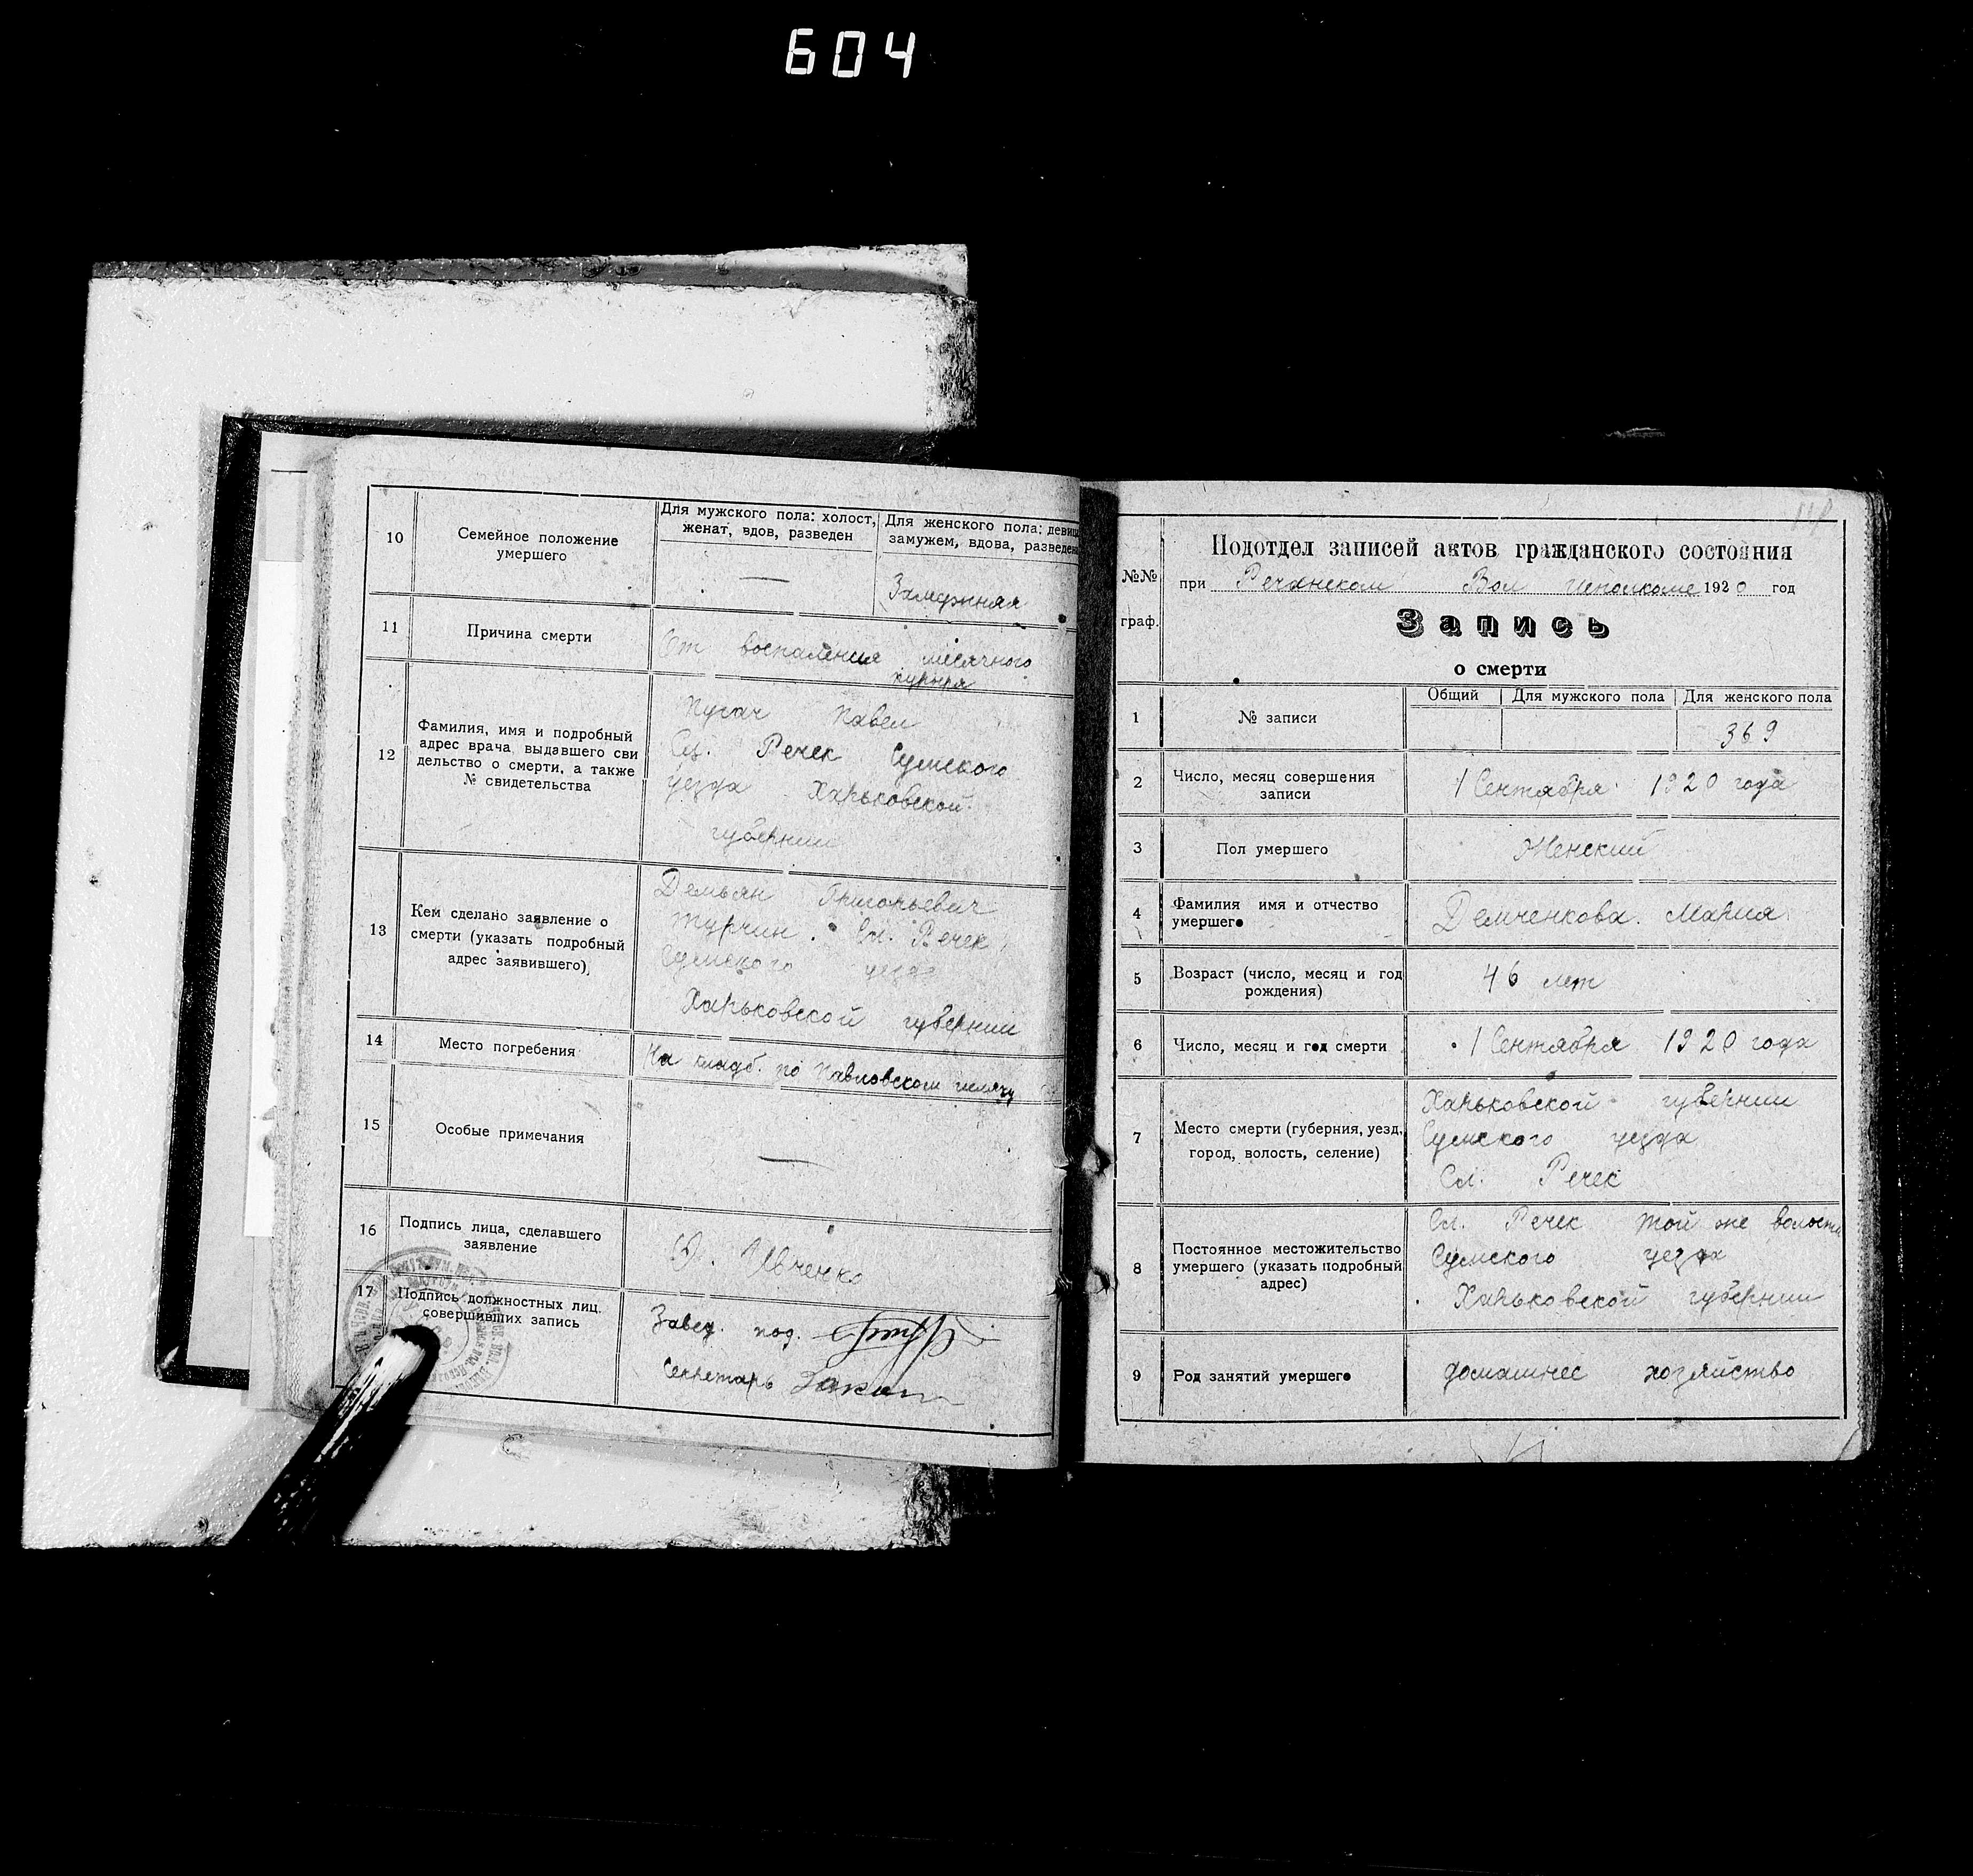 604
10
Семейное положение
умершего
Для мужского пола: холост,
женат, вдов, разведен
Для женского пола: девица
замужем, вдова, разведена
—
11
Причина смерти
От воспаления месячного
12
Фамилия, имя и подробный
адрес врача, выдавшего сви
дельство о смерти, а также
№ свидетельства
Пугач Павел
Сл. Речек Сумского
уезда Харьковской
губернии
13
Кем сделано заявление о
смерти (указать подробный
адрес заявившего)
Демьян Григорьевич
Турчин. Сл. Речек
Сумского уезда
Харьковской губернии
14
Место погребения
На кладб. по Павловском шляху
15
Особые примечания
—
16
Подпись лица, сделавшего
заявление
Ивченко
17
Подпись должностных лиц,
совершивших запись
Завед. под.
Секретарь
№№
граф.
Подотдел записей актов гражданского состояния
при Речанском Вол Исполкоме 1920 год
Запись
о смерти
1
№ записи
Общий
Для мужского пола
Для женского пола
369
2
Число, месяц совершения
записи
1 Сентября 1920 года
3
Пол умершего
Женский
4
Фамилия имя и отчество
умершего
Демченкова Мария
5
Возраст (число, месяц и год
рождения)
46 лет
6
Число, месяц и год смерти
1 Сентября 1920 года
7
Место смерти (губерния, уезд,
город, волость, селение)
Харьковской губернии
Сумского уезда
Сл. Речек
8
Постоянное местожительство
умершего (указать подробный
адрес)
Сл. Речек той же волости
Сумского уезда
Харьковской губернии
9
Род занятий умершего
домашнее хозяйство